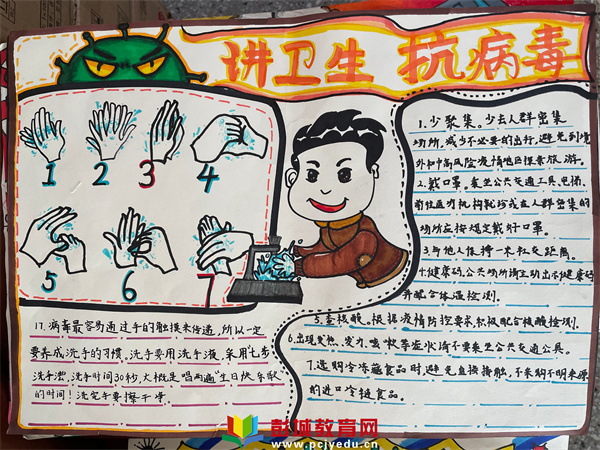 讲卫生 抗病毒
1 2 3 4
5 6 7
1.少聚集。少去人群密集
场所,减少不必要的出行,避免到境
外和中高风险疫情地区探亲旅游。
2.戴口罩。乘坐公共交通工具、电梯、
前往医疗机构就诊或在人群密集的
场所应按规定戴好口罩。
3.与他人保持一米社交距离。
4.健康码。公共场所请主动出示健康码
并配合体温检测。
5.查核酸。根据疫情防控要求,积极配合核酸检测。
6.出现发热、乏力、咳嗽等症状请不要乘坐公共交通工具。
7.选购冷冻藏食品时,避免直接接触,不采购不明来源
的进口冷链食品。
17.病毒最容易通过手的触摸来传递,所以一定
要养成洗手的习惯,洗手要用洗手液,采用七步
洗手法,洗手时间30秒,大概是唱两遍"生日快乐歌"
的时间!洗完手要擦干净
彭林教育网
www.pcjyedu.cn